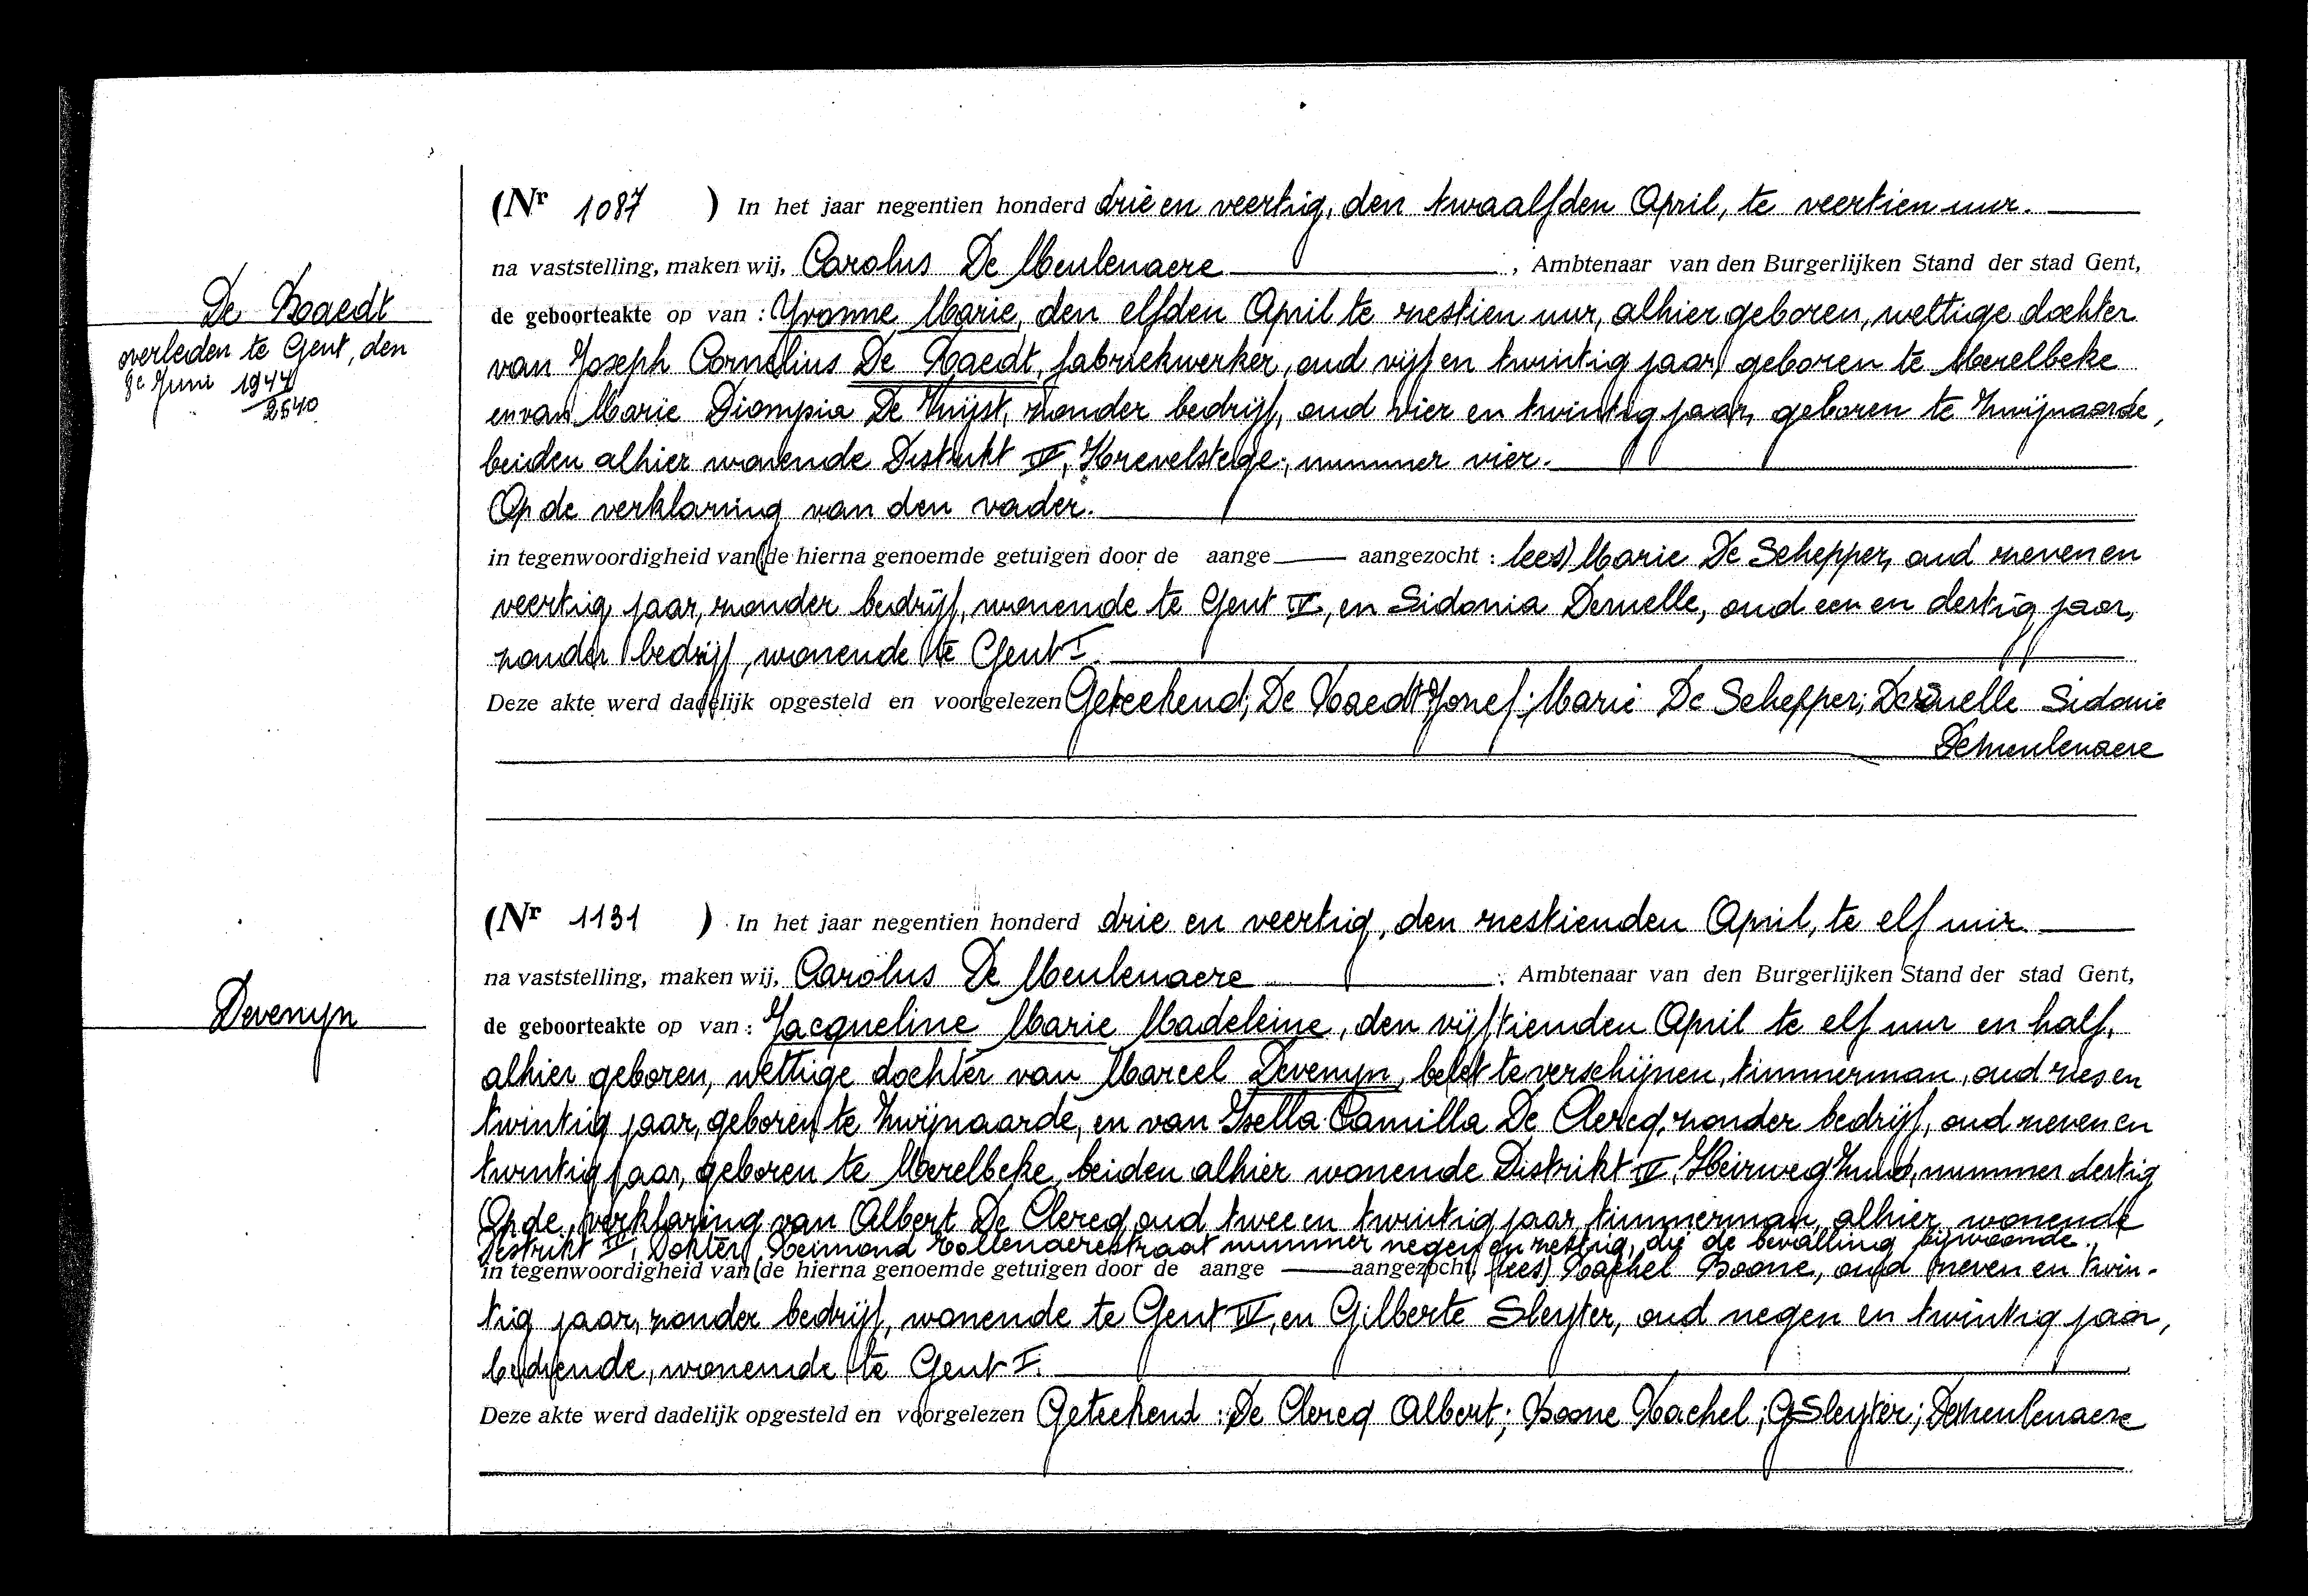 (Nr 1087 ) In het jaar negentien honderd drie en veertig, den twaalfden April, te veertien uur.
na vaststelling, maken wij, Carolus De Meulenaere, Ambtenaar van den Burgerlijken Stand der stad Gent,
de geboorteakte op van : Yvonne Marie, den elfden April te zestien uur, alhier geboren, wettige dochter
van Joseph Cornelius De Raedt, fabriekwerker, oud vijf en twintig jaar, geboren te Merelbeke
en van Marie Diompia De Knijst, zonder bedrijf, oud vier en twintig jaar, geboren te Zwijnaarde,
beiden alhier wonende Distrikt IV, Krevelstege, nummer vier.
Op de verklaring van den vader.
in tegenwoordigheid van (de hierna genoemde getuigen door de aange aangezocht : lees) Marie De Schepper, oud zeven en
veertig jaar, zonder bedrijf, wonende te Gent IV, en Sidonia Deruelle, oud een en dertig jaar,
zonder bedrijf, wonende te Gent I.
Deze akte werd dadelijk opgesteld en voorgelezen Geteekend; De Raedt Jozef; Marie De Schepper; Deruelle Sidonie
Demeulenaere
De Raedt
overleden te Gent, den
8e Juni 1944
2540
(Nr 1131 ) In het jaar negentien honderd drie en veertig, den zestienden April, te elf uur.
na vaststelling, maken wij, Carolus De Meulenaere, Ambtenaar van den Burgerlijken Stand der stad Gent,
de geboorteakte op van : Jacqueline Marie Madeleine, den vijftienden April te elf uur en half,
alhier geboren, wettige dochter van Marcel Devenyn, belet te verschijnen, timmerman, oud zes en
twintig jaar, geboren te Zwijnaarde, en van Isella Camilla De Clercq, zonder bedrijf, oud zeven en
twintig jaar, geboren te Merelbeke, beiden alhier wonende Distrikt IV, Heirweg Zuid, nummer dertig
Op de verklaring van Albert De Clercq oud twee en twintig jaar, timmerman, alhier wonende
Distrikt IV, Dokter Reimond Rollenaerestraat nummer negen en zestig, die de bevalling bijwoonde.
in tegenwoordigheid van (de hierna genoemde getuigen door de aange aangezocht, lees) Rachel Boone, oud zeven en twin-
tig jaar, zonder bedrijf, wonende te Gent IV, en Gilberte Sleyter, oud negen en twintig jaar,
bediende, wonende te Gent I.
Deze akte werd dadelijk opgesteld en voorgelezen Geteekend : De Clercq Albert; Boone Rachel; G Sleyter; Demeulenaere
Devenyn